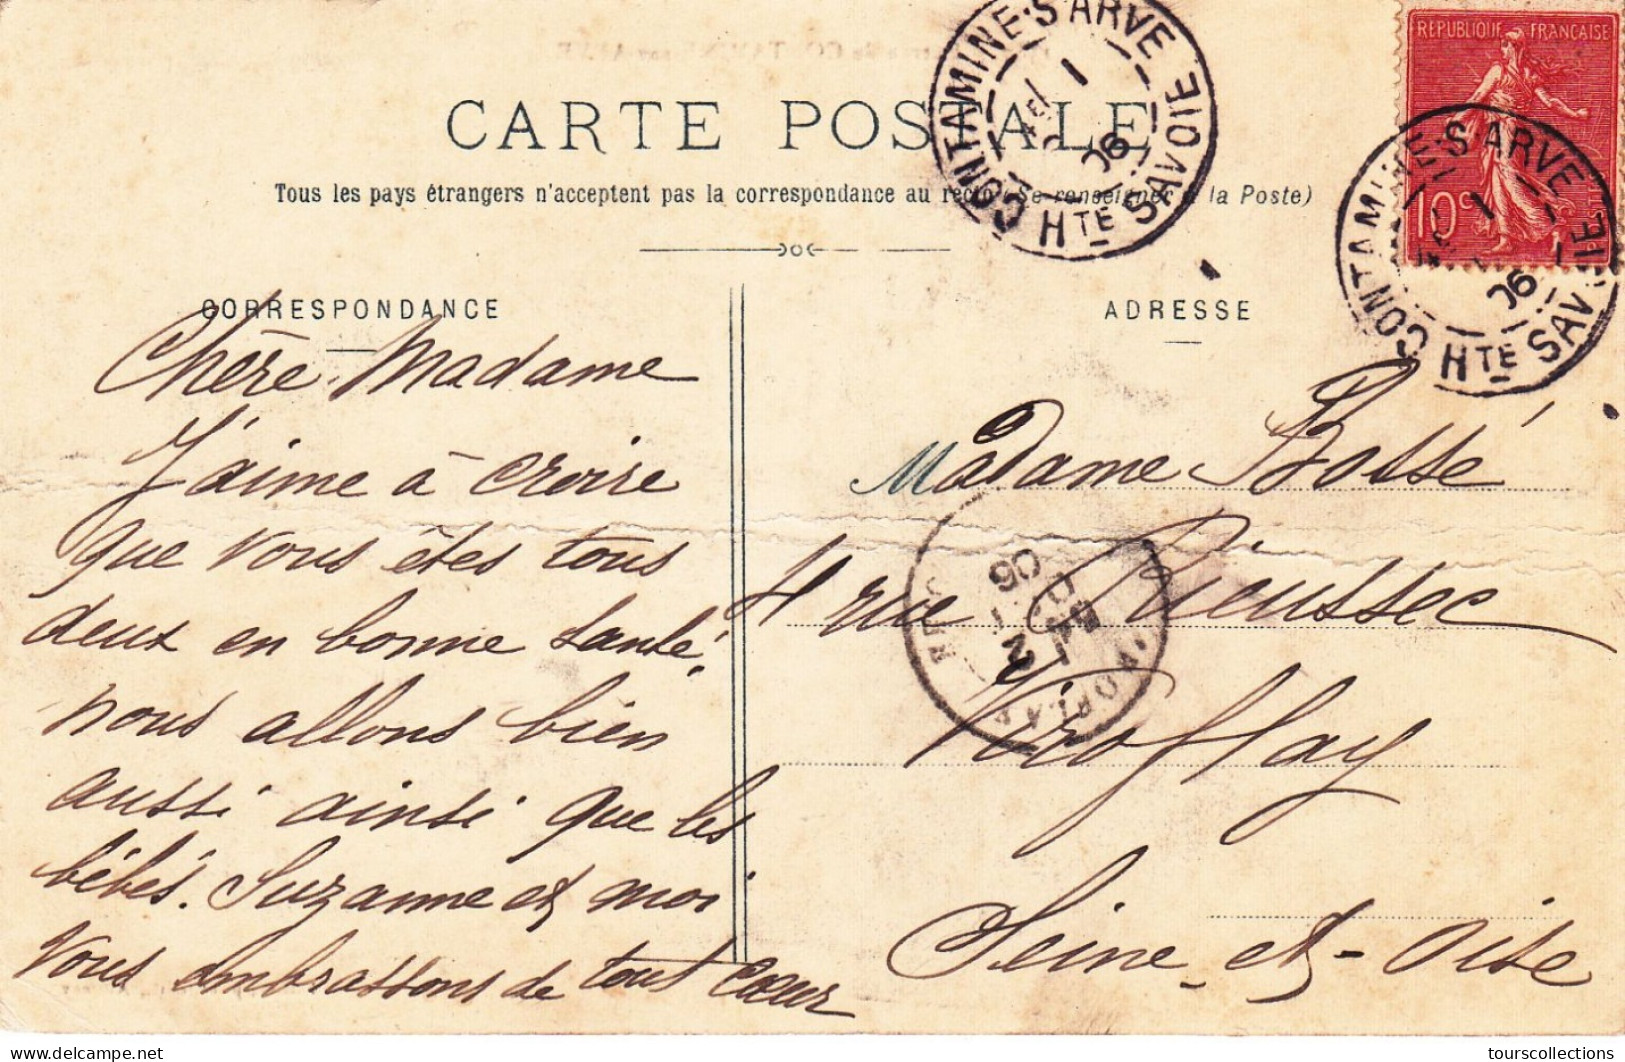 CARTE POSTALE
Tous les pays étrangers n'acceptent pas la correspondance au recto (Se renseigner à la Poste)
CORRESPONDANCE
Chère Madame
J'aime à croire
que vous êtes tous
deux en bonne santé.
nous allons bien
aussi ainsi que les
bébés. Suzanne et moi
vous embrassons de tout cœur
ADRESSE
Madame Bossé
4 rue Rieussec
Viroflay
Seine-et-Oise
REPUBLIQUE FRANÇAISE
10c
CONTAMINE-S-ARVE
HTE SAVOIE
1
06
CONTAMINE-S-ARVE
HTE SAVOIE
1
06
2
06
delcampe.net
tourscollections